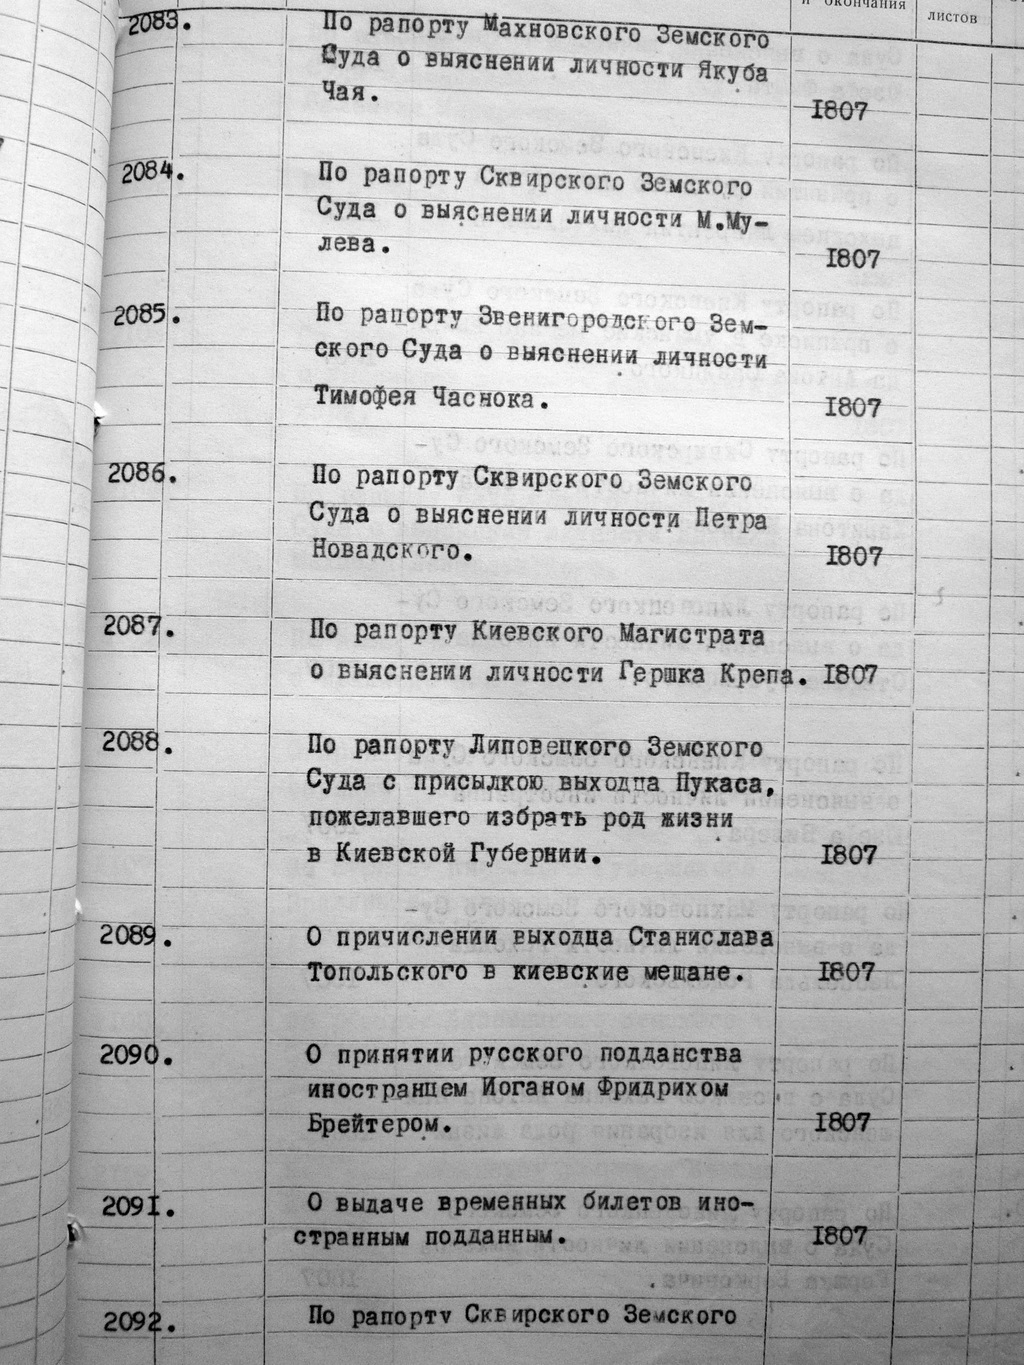 и окончания
листов
2083. По рапорту Махновского Земского
Суда о выяснении личности Якуба
Чая. 1807
2084. По рапорту Сквирского Земского
Суда о выяснении личности М.Му-
лева. 1807
2085. По рапорту Звенигородского Зем-
ского Суда о выяснении личности
Тимофея Часнока. 1807
2086. По рапорту Сквирского Земского
Суда о выяснении личности Петра
Новадского. 1807
2087. По рапорту Киевского Магистрата
о выяснении личности Гершка Крепа. 1807
2088. По рапорту Липовецкого Земского
Суда с присылкою выходца Пукаса,
пожелавшего избрать род жизни
в Киевской Губернии. 1807
2089. О причислении выходца Станислава
Топольского в киевские мещане. 1807
2090. О принятии русского подданства
иностранцем Иоганом Фридрихом
Брейтером. 1807
2091. О выдаче временных билетов ино-
странным подданным. 1807
2092. По рапорту Сквирского Земского